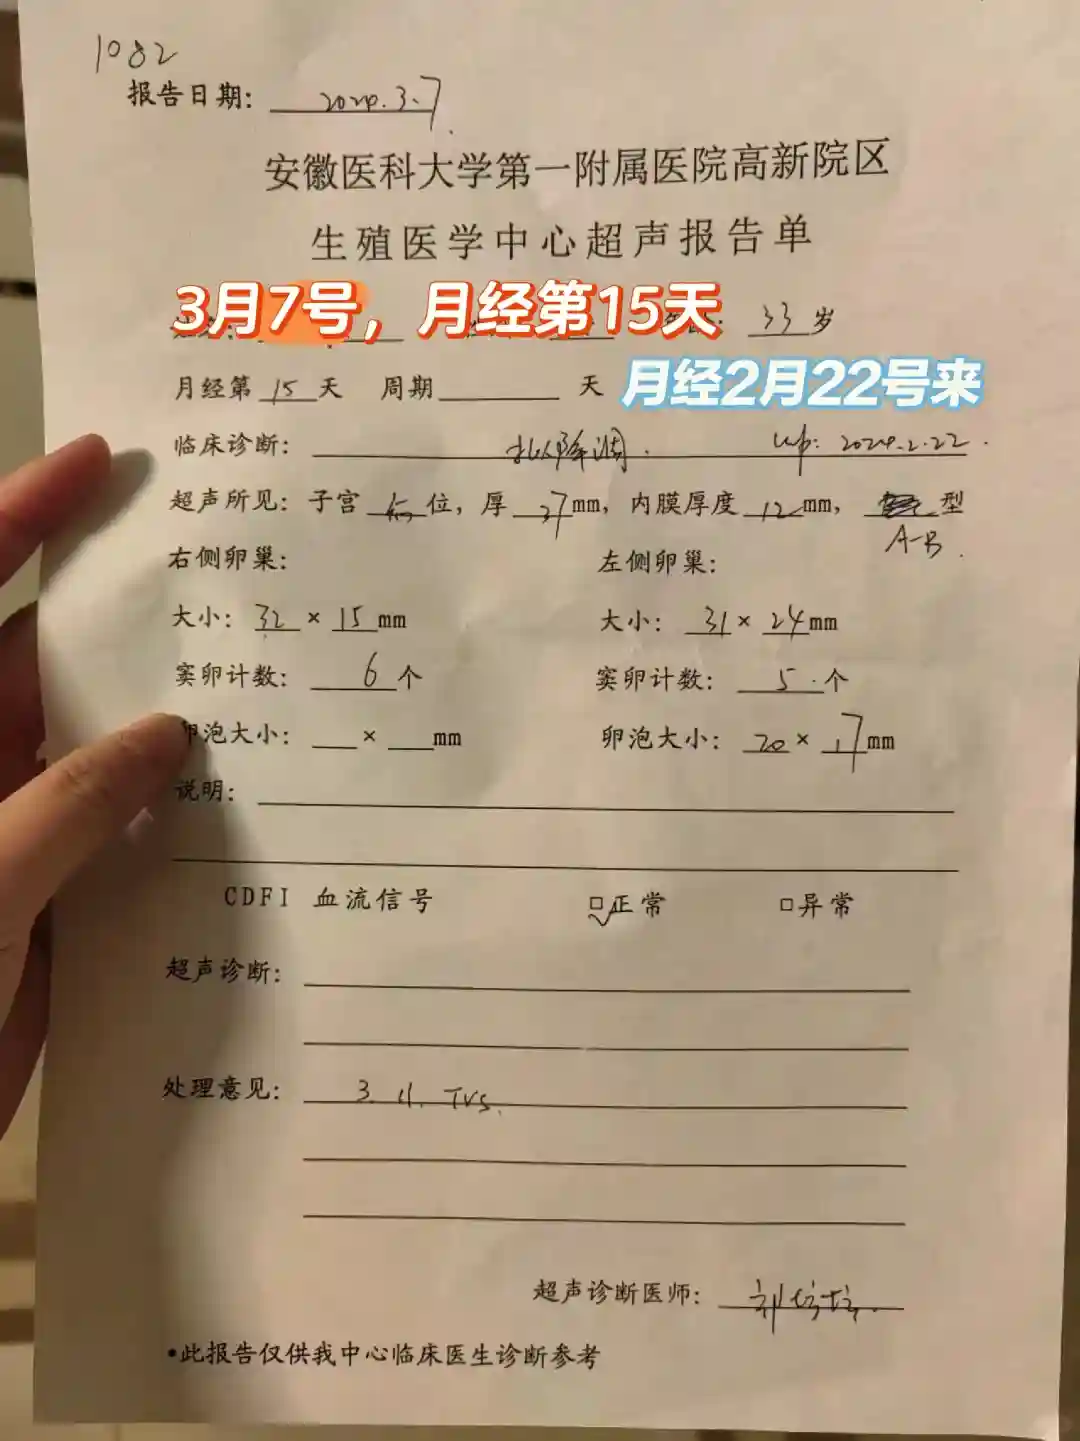 1082
报告日期: 2024.3.7
安徽医科大学第一附属医院高新院区
生殖医学中心超声报告单
3月7号，月经第15天
33岁
月经第15天 周期 天
月经2月22号来
临床诊断: 2024.2.22.
超声所见: 子宫 后 位, 厚 37 mm, 内膜厚度 12 mm, 型
A-B.
右侧卵巢: 左侧卵巢:
大小: 32 × 15 mm 大小: 31 × 24 mm
窦卵计数: 6 个 窦卵计数: 5 个
卵泡大小: × mm 卵泡大小: 20 × 17 mm
说明:
CDFI 血流信号 □正常 □异常
超声诊断:
处理意见: 3.11. TVS.
超声诊断医师:
•此报告仅供我中心临床医生诊断参考